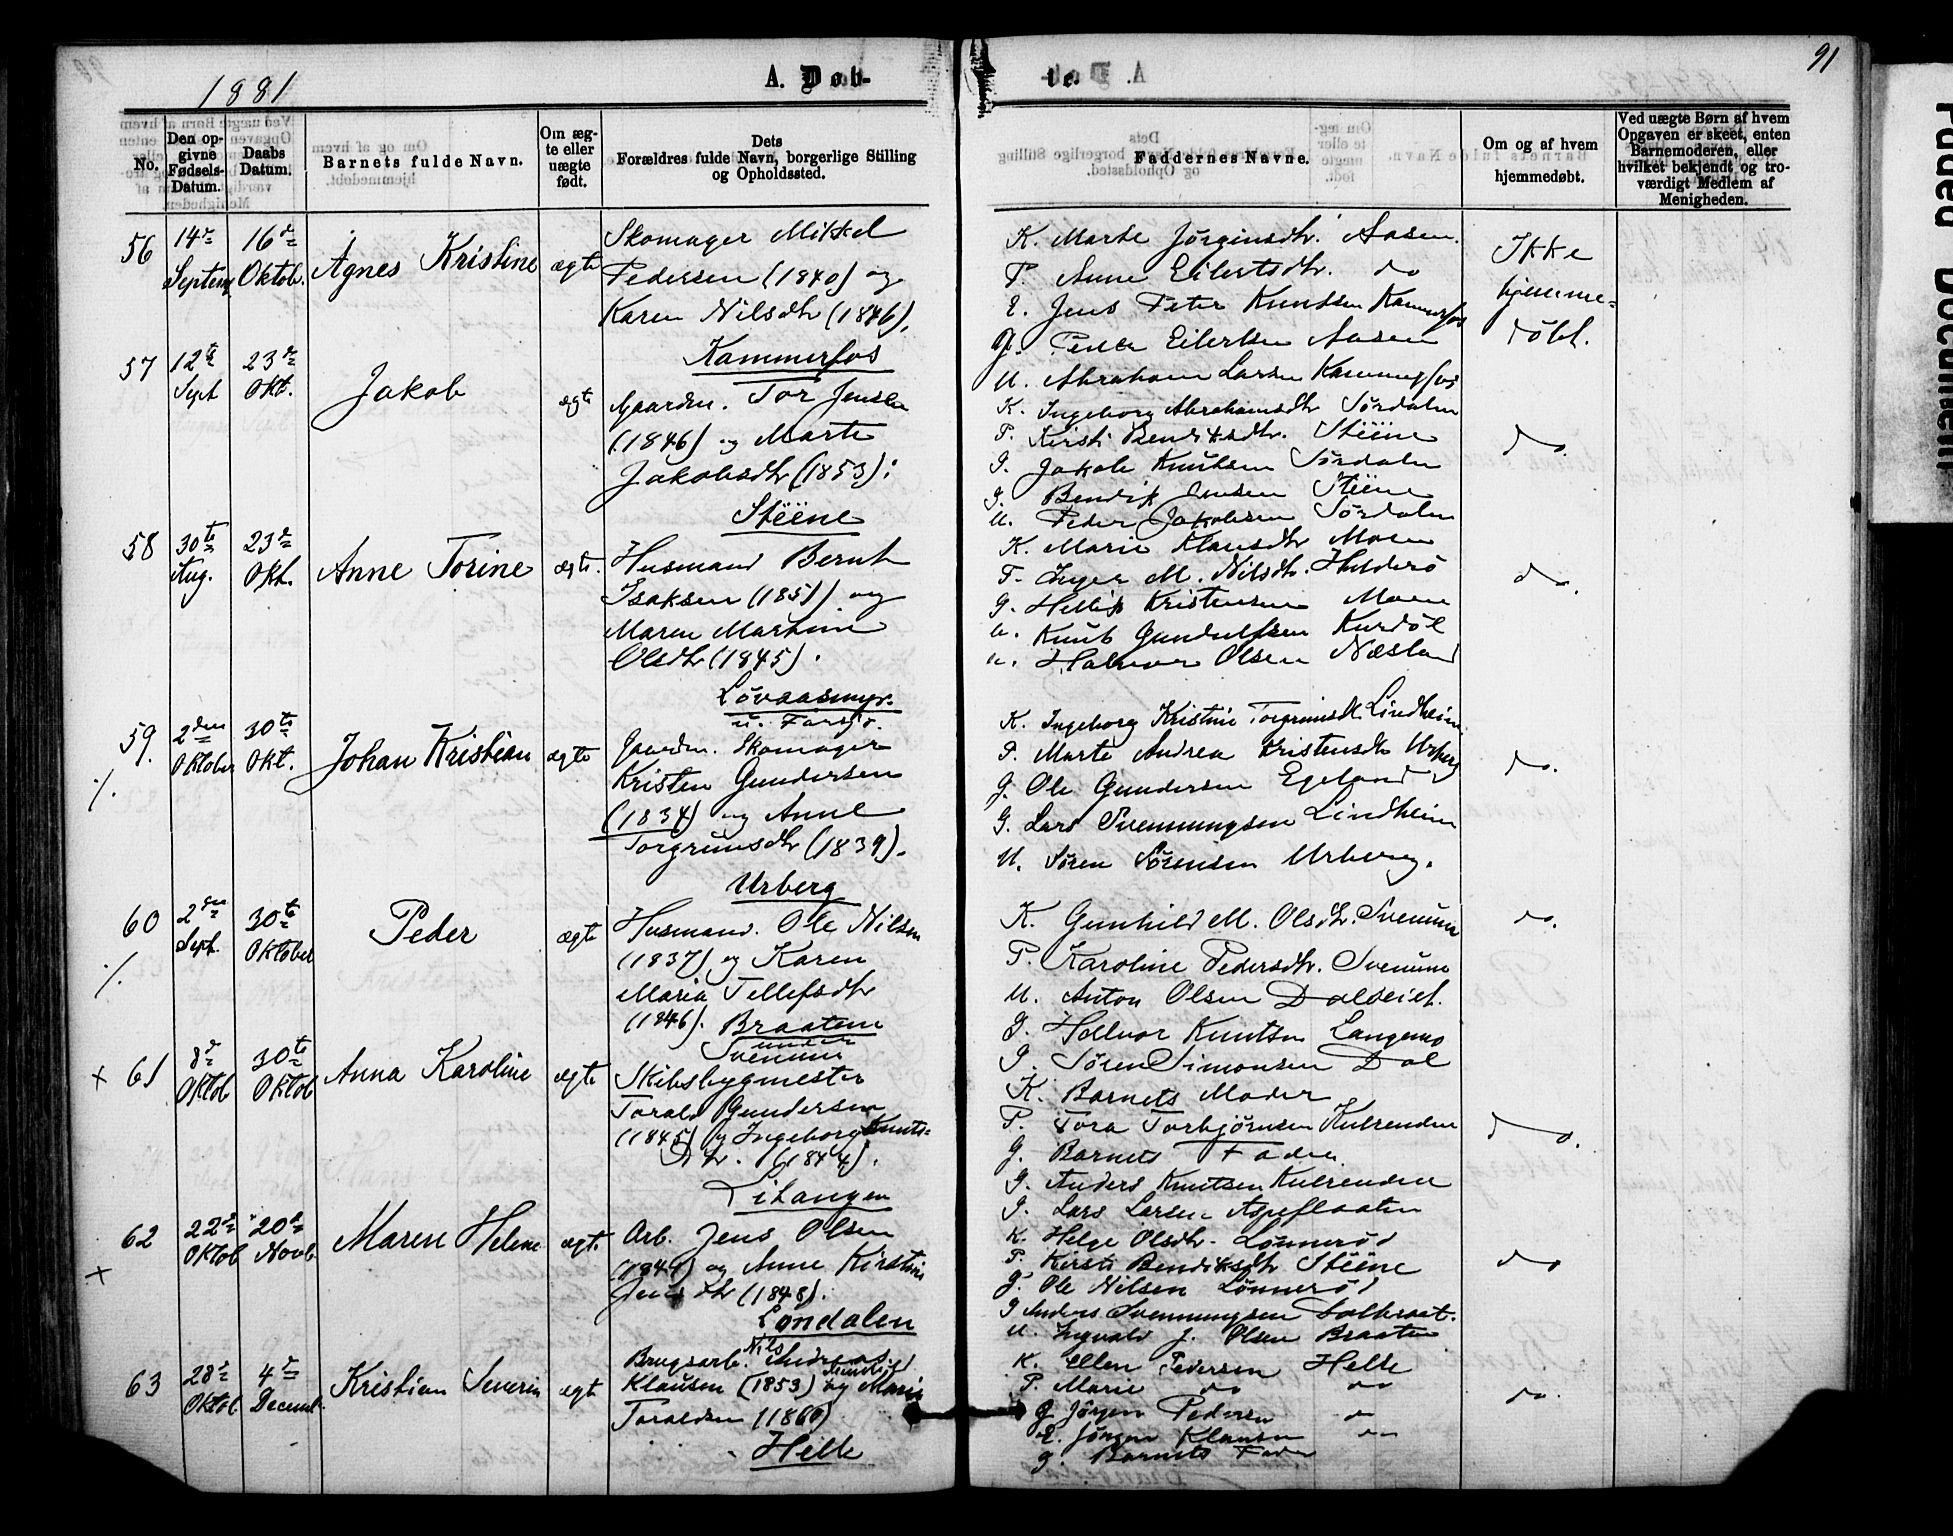 1881
A. Døb-
te.
91
No.
Den op-
givne
Fødsels-
Datum.
Daabs
Datum.
Barnets fulde Navn.
Om æg-
te eller
uægte
født.
Dets
Forældres fulde Navn, borgerlige Stilling
og Opholdssted.
Faddernes Navne.
Om og af hvem
hjemmedøbt.
Ved uægte Børn af hvem
Opgaven er skeet, enten
Barnemoderen, eller
hvilket bekjendt og tro-
værdigt Medlem af
Menigheden.
56
14de
Septemb
16de
Oktob.
Agnes Kristine
ægte
Skomager Mikkel
Pedersen (1840) og
Karen Nilsdtr (1846).
Kammerfos
K. Marte Jørginsdtr. Aasen.
P. Anne Eilertsdtr. do
E. Jens Peter Knutsen Kammerfos
G. Peder Eilertsen Aasen
U. Abraham Larsen Kammerfos
Ikke
hjemme-
døbt.
57
12te
Sept
23de
Okt.
Jakob
ægte
Gaardm. Tor Jensen
(1846) og Marte
Jakobsdtr (1853):
Stëine
K. Ingeborg Abrahamsdtr Sørdalen
P. Kirsti Bendiksdtr. Stëine
G. Jakob Knutsen Sørdalen
G. Bendik Jensen Stëine
U. Peder Jakobsen Sørdalen
do.
58
30te
Aug.
23de
Okt.
Anne Torine
ægte.
Husmand Bernt
Isaksen (1851) og
Maren Martine
Olsdtr (1845).
Lövaasmyr.
u. Farsjø.
K. Marie Klausdtr Moen
P. Inger M. Nilsdtr. Holderö
G. Hellik Kristensen Moen
U. Knut Gundulfsen Kurdöl
U. Halvor Olsen Næsland
do.
59.
2den
Oktober
30te
Okt.
Johan Kristian
ægte
Gaardm. Skomager
Kristen Gundersen
(1834) og Anne
Torgrimsdtr (1839).
Urberg
K. Ingeborg Kristine Torgrimsdt. Lindheim
P. Marte Andrea Kristensdtr Urberg
G. Ole Gundersen Egeland
G. Lars Svennungsen Lindheim
U. Søren Sörensen Urberg.
do.
60
2den
Sept.
30te
Oktober
Peder
ægte
Husmand. Ole Nilsen
(1837) og Karen
Maria Tellefsdtr
(1846). Braatene
under
Svenum
K. Gunhild M. Olsdtr. Svenum
P. Karoline Pedersdtr. Svenum
U. Anton Olsen Dalseiet.
G. Halvor Knutsen Langemo
G. Søren Simonsen Dal
do.
61
8de
Oktob
30te
Oktob
Anna Karoline
ægte
Skibsbygmester
Torald Gundersen
(1845) og Ingeborg Knuts-
dtr. (1844).
Litangen
K. Barnets Moder
P. Tora Torbjørnsen Kurenden
G. Barnets Fader
G. Anders Knutsen Kurenden
G. Lars Larsen Aspeflaaten
do.
62
22de
Oktob
20de
Novb
Maren Helene
ægte
Arb. Jens Olsen
(1849) og Anne Kirstine
Jensdtr (1848).
Løndalen
K. Helge Olsdtr. Lønnerød
P. Kirsti Bendiksdtr Stëine
G. Ole Nilsen Lönneröd
G Anders Svennungsen Dalbraat.
U. Ingvald J. Olsen Braaten
do
63
28de
Oktob.
4de
Decemb.
Kristian Severin
ægte
Brugsarb. Nils Andreas
Klausen (1853) og Marie
Toraldsen (1860)
Helle
K. Ellen Pedersen Helle
P. Marie do do
G Jörgen Pedersen do
E. Jørgen Klausen do
G. Barnets Fader
do.